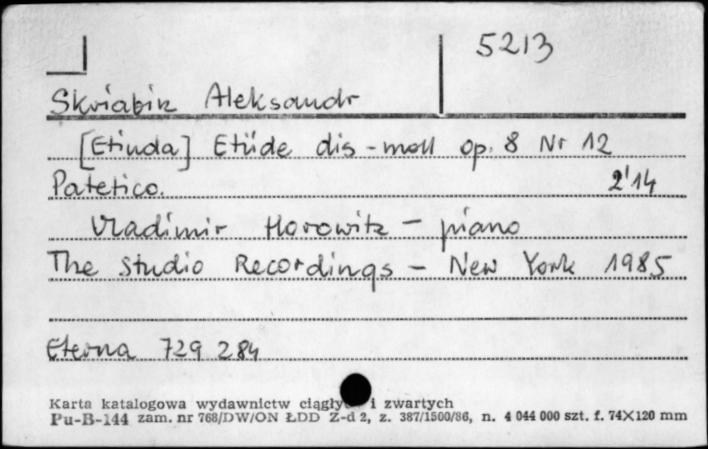 5213
Skriabin Aleksandr
[Etiuda] Etüde dis-moll op. 8 Nr 12
Patetico. 2'14
Vladimir Horowitz - piano
The Studio Recordings - New York 1985
Eterna 729 284
Karta katalogowa wydawnictw i zwartych
Pu-B-144 zam. nr 768/DW/ON ŁDD Z-d 2, z. 387/1500/86, n. 4 044 000 szt. f. 74X120 mm